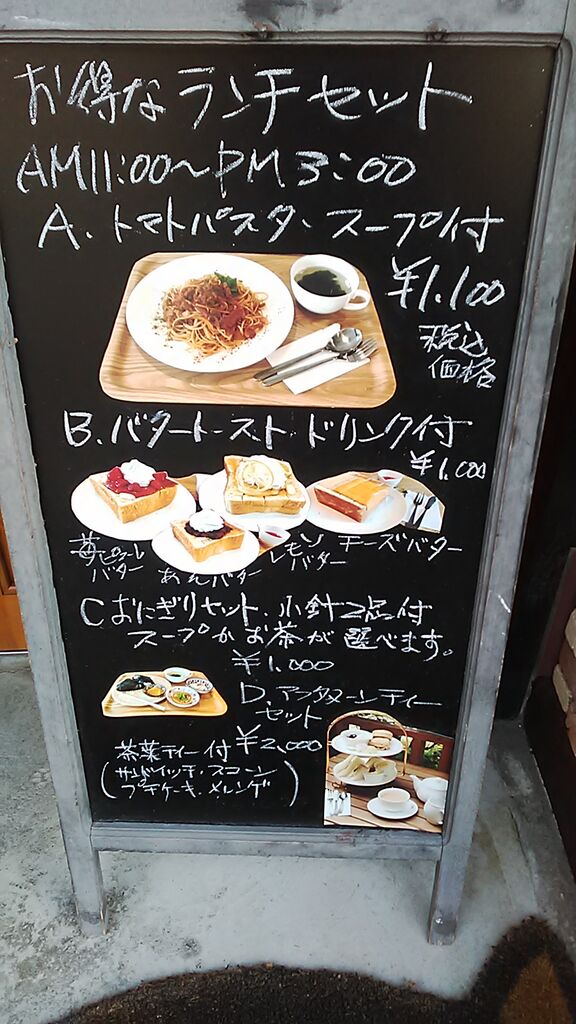 お得なランチセット
AM11:00〜PM3:00
A.トマトパスタ・スープ付
¥1.100
税込
価格
B.バタートースト・ドリンク付
¥1.000
苺ピューレ
バター
あんバター
レモン
バター
チーズバター
Cおにぎりセット.小針2品付
スープかお茶が選べます。
¥1.000
D.アフタヌーンティー
セット
茶葉ティー付 ¥2,000
(サンドイッチ・スコーン
プチケーキ・メレンゲ)